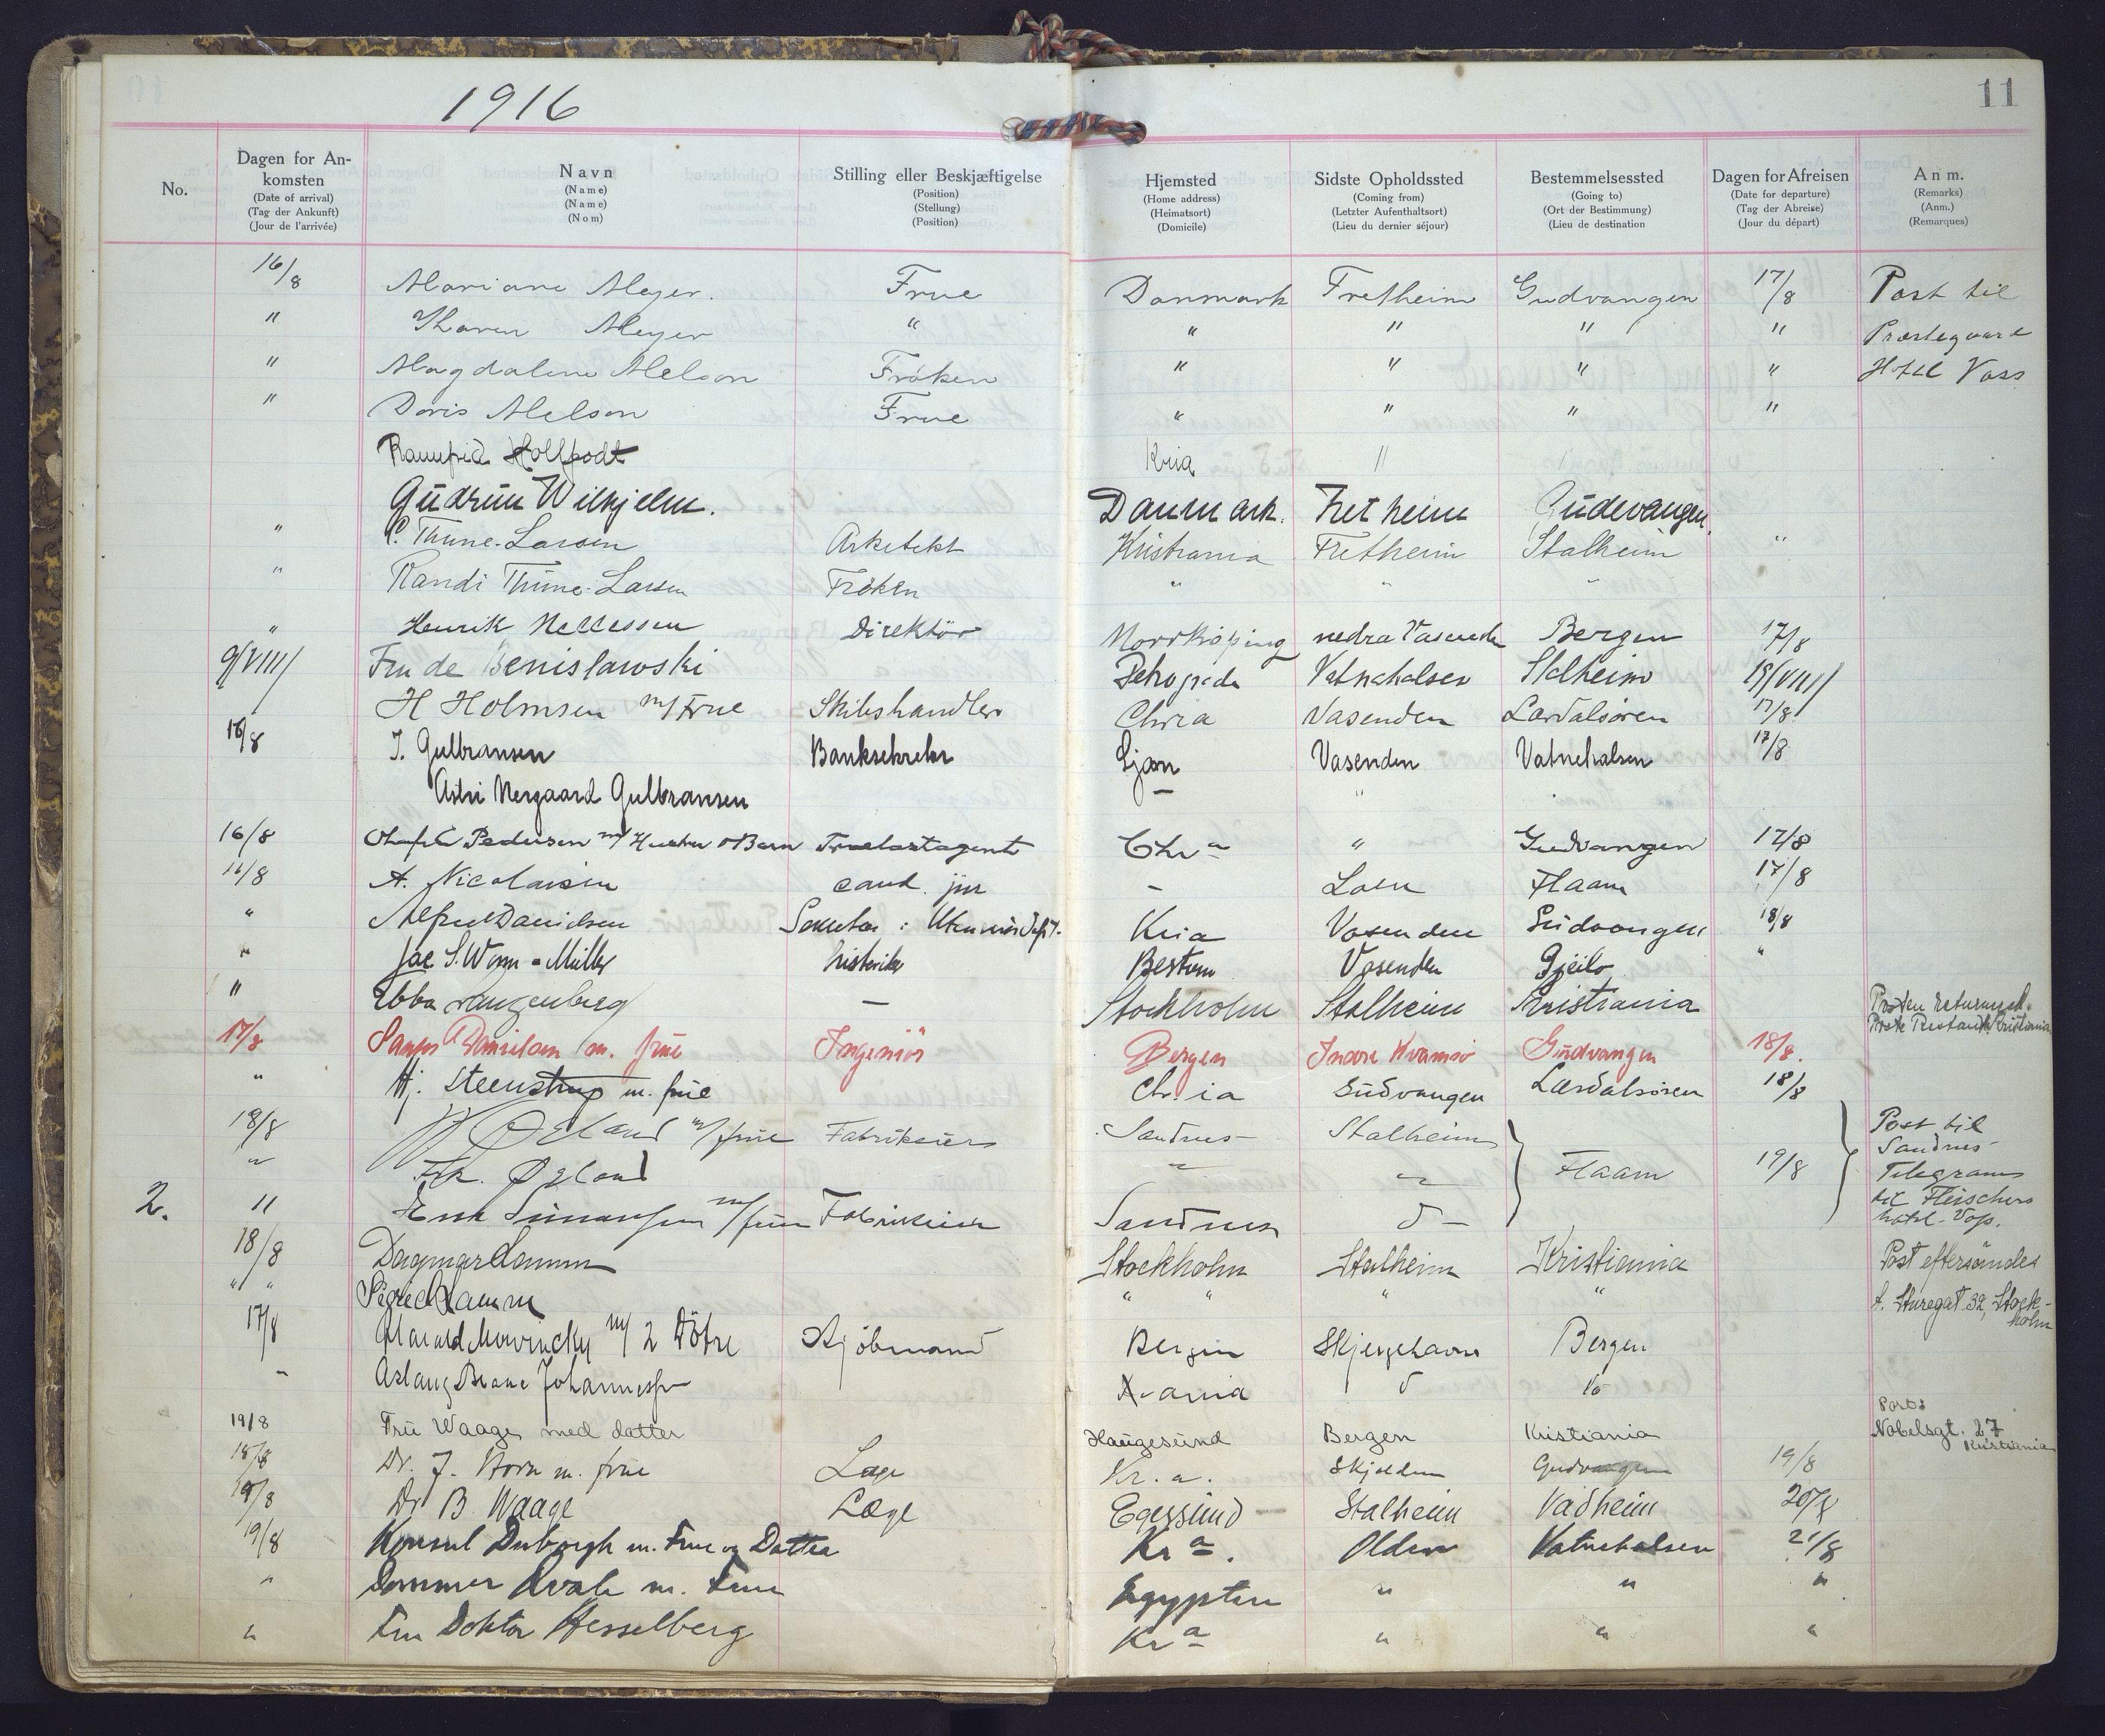 1916
11
No. Dagen for An-komsten (Date of arrival) (Tag der Ankunft) (Jour de l'arrivée) Navn (Name) (Name) (Nom) Stilling eller Beskjæftigelse (Position) (Stellung) (Position) Hjemsted (Home address) (Heimatsort) (Domicile) Sidste Opholdssted (Coming from) (Letzter Aufenthaltsort) (Lieu du dernier séjour) Bestemmelsessted (Going to) (Ort der Bestimmung) (Lieu de destination Dagen for Afreisen (Date for departure) (Tag der Abreise) (Jour du départ) Anm. (Remarks) (Anm.) (Remarques)
16/8 Mariane Meyer. Frue Danmark Fretheim Gudvangen 17/8 Post til
" Karen Meyer " " " " " Præstegaard
" Magdalene Nelson Frøken " " " " Hotel Voss
" Doris Nelson Frue " " " "
Kria "
Gudrun Wilhjelm. Danmark. Fretheim Gudevangen.
" C. Thune-Larsen Arkitekt Kristiania Fretheim Stalheim "
" Randi Thune-Larsen Frøken " " "
" Henrik Direktör Norrköping nedra Vasenden Bergen 17/8
9/VIII/ Fru de Benislawski Vatnahalsen Stalheim 19/VIII/
H Holmsen m/Frue Skibshandler Chria Vasenden Lærdalsøren 17/8
16/8 J. Gulbransen Banksekretær Ljan Vasenden Vatnehalsen 17/8
Astri Nergaard Gulbransen – "
16/8 Pedersen m/ Hustru o Barn Trælastagent Chra " Gudvangen 17/8
A. Nicolaisen cand. jur – Loen Flaam 17/8
" Alfred Danielsen Kria Vasenden Gudvangen 18/8
" Jac S. Worm-Müller historiker Bestum Vasenden Gjeilo "
" Ebba – Stockholm Stalheim Kristiania
Poste Restante Kristiania
17/8 Danielsen m. frue Ingeniör Bergen Indre Kvamsø Gudvangen 18/8.
" Hj. Steenstrup m. frue Chr.ia Gudvangen Lærdalsøren 18/8
18/8 Øgland m/frue Fabrikeier Sandnes Stalheim Post til
" Frk. Øgland " " Flaam 19/8 Sandnes
Telegrams
2. " m/frue Fabrikeier Sandnes d– til Fleischers
hotel-Voss.
18/8 Dagmar Lamm Stockholm Stalheim Kristiania Post eftersändes
" " Sigrid Lamm " " " " t. Sturegat. 32, Stock-
holm
17/8 Harald Mowinckel m/ 2 Døtre Kjöbmand Bergen Skjergehavn Bergen
– Aslaug Johannessen
19/8 Fru Waage med datter Haugesund Bergen Kristiania Nobelsgt. 27 Kristiania
18/8 Dr. J. Horn m. frue Læge Kr.a. Skjolden Gudvangen 19/8
Dr B. Waage Læge Egersund Stalheim Vadheim 20/8
19/8 Konsul Duborgh m. Frue og Datter Kra. Olden Vatnehalsen 21/8
" Dommer Qvale m. Frue Egypten " " "
" Fru Doktor Hesselberg Kra " " "